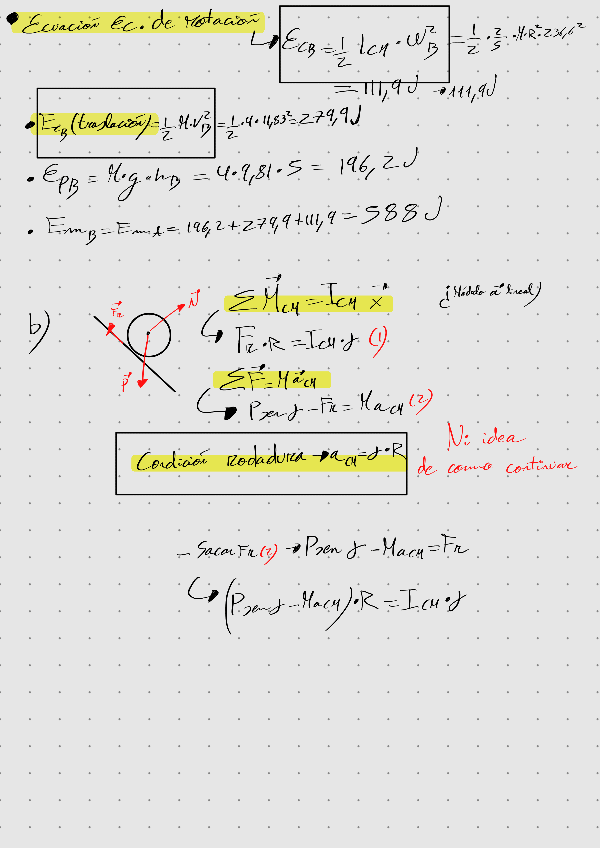 • Ecuación Ec. de rotación
↳ E_CB = 1/2 I_CM · ω_B² = 1/2 · 2/5 · M·R² · 236,6²
= 111,9J → 111,9J
• E_CB (traslación) = 1/2 M·V_B² = 1/2 · 4 · 11,83² = 279,9J
• E_PB = M·g·h_B = 4·9,81·5 = 196,2J
• Em_B = Em_A = 196,2 + 279,9 + 111,9 = 588J
b)
F_R
N
P
ΣM_CM = I_CM
(¡Módulo a lineal)
↳ F_R · R = I_CM · γ (1)
ΣF = Ma_CM
↳ P sen γ - F_R = Ma_CM (2)
Condición rodadura → a_CM = γ · R
Ni idea
de como continuar
- Sacar F_R (2) → P sen γ - Ma_CM = F_R
↳ (P sen γ - Ma_CM) · R = I_CM · γ